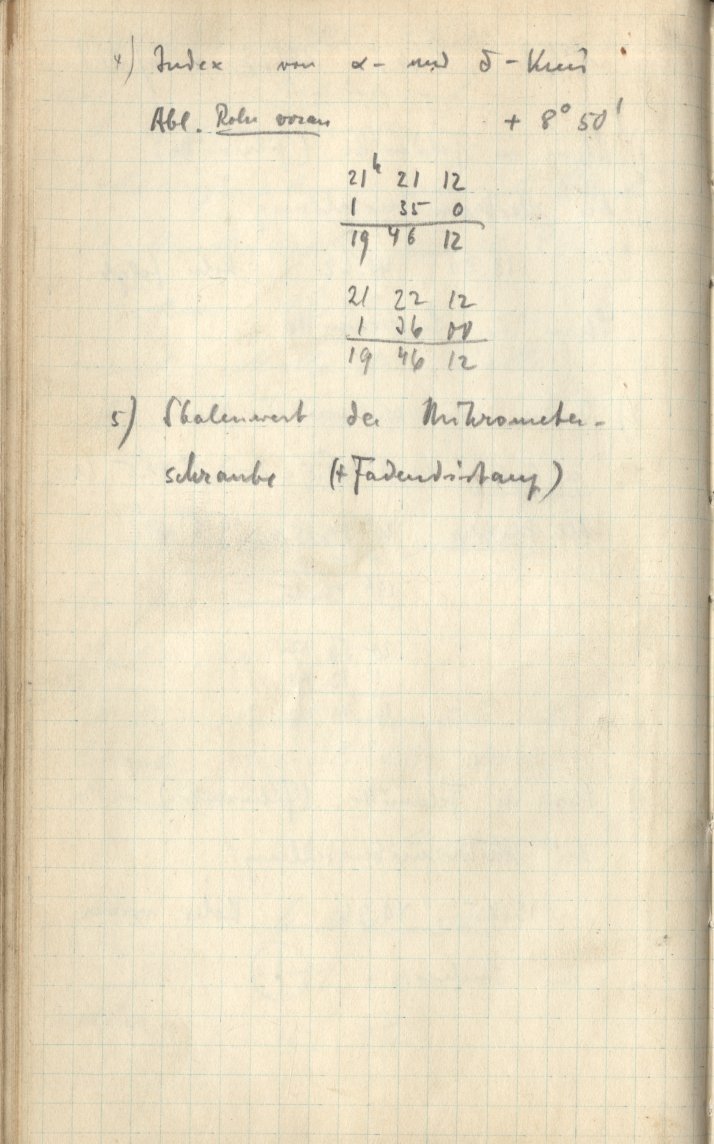 4) Index von α- und δ-Kreis
Abl. Rohr voran + 8° 50'
21ʰ 21 12
1 35 0
19 46 12
21 22 12
1 36 00
19 46 12
5) Skalenwert der Mikrometer-
schraube (+ Fadendistanz)